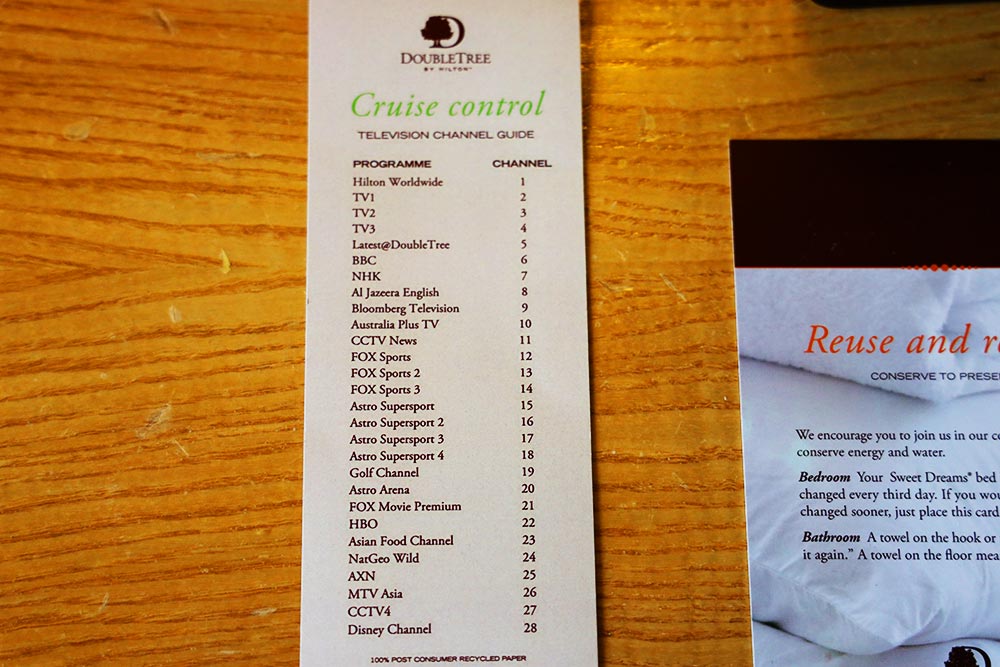 DOUBLETREE
BY HILTON™
Cruise control
TELEVISION CHANNEL GUIDE
PROGRAMME CHANNEL
Hilton Worldwide 1
TV1 2
TV2 3
TV3 4
Latest@DoubleTree 5
BBC 6
NHK 7
Al Jazeera English 8
Bloomberg Television 9
Australia Plus TV 10
CCTV News 11
FOX Sports 12
FOX Sports 2 13
FOX Sports 3 14
Astro Supersport 15
Astro Supersport 2 16
Astro Supersport 3 17
Astro Supersport 4 18
Golf Channel 19
Astro Arena 20
FOX Movie Premium 21
HBO 22
Asian Food Channel 23
NatGeo Wild 24
AXN 25
MTV Asia 26
CCTV4 27
Disney Channel 28
100% POST CONSUMER RECYCLED PAPER
Reuse and
CONSERVE TO
We encourage you to join us in our
conserve energy and water.
Bedroom Your Sweet Dreams® bed
changed every third day. If you
changed sooner, just place this card
Bathroom A towel on the hook or
it again.” A towel on the floor